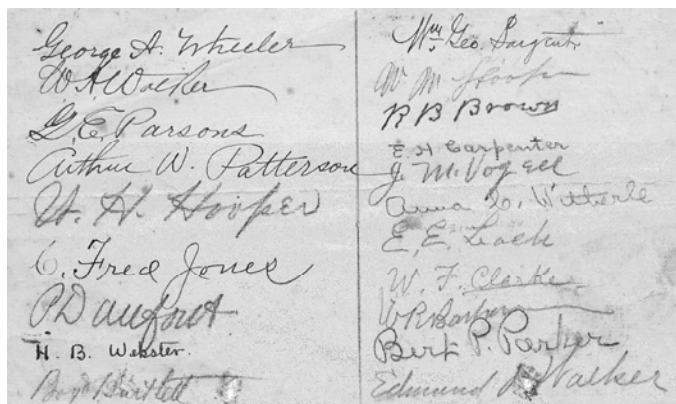 George A. Wheeler
W A Walker
G. E. Parsons
Arthur W. Patterson
W. H. Hooper
C. Fred Jones
H. B. Webster.
Boyd Bartlett
Mrs. Geo. Sargent
W M Hooper
R B Brown
E. H. Carpenter
J. M. Vogell
Anna C. Witherle
E. E.
W. F. Clarke
Bert P. Parker
Edmund Walker